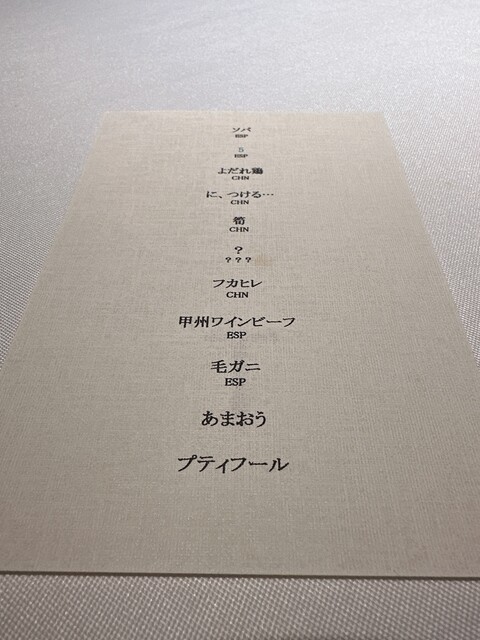 ソパ
ESP
5
ESP
よだれ鶏
CHN
に、つける…
CHN
筍
CHN
?
???
フカヒレ
CHN
甲州ワインビーフ
ESP
毛ガニ
ESP
あまおう
プティフール